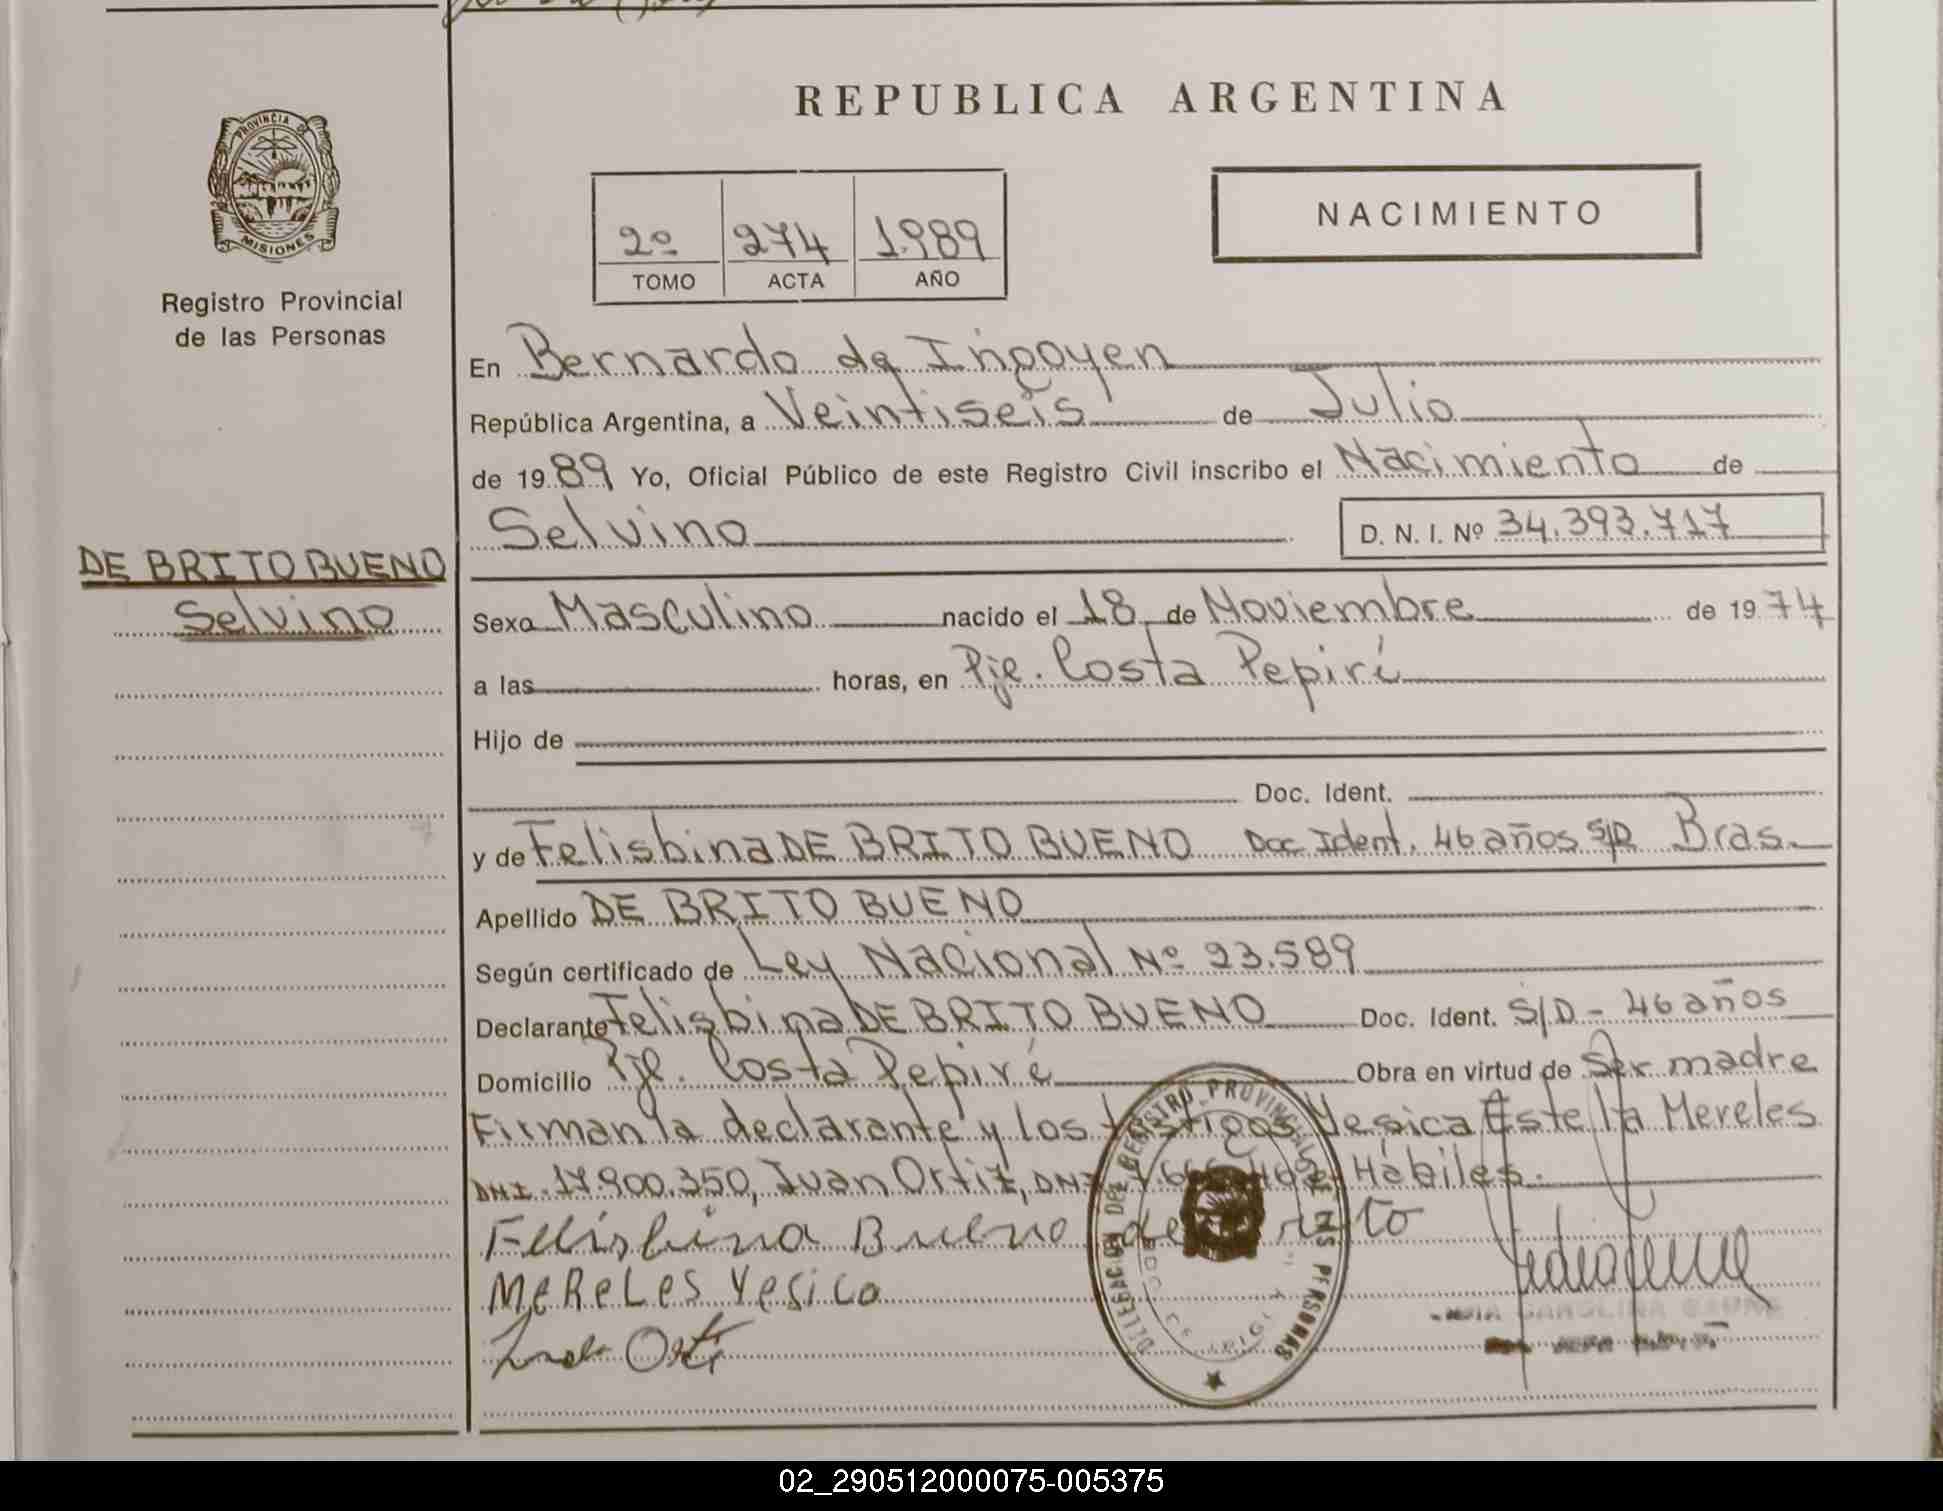 REPUBLICA ARGENTINA
PROVINCIA DE
MISIONES
Registro Provincial
de las Personas
NACIMIENTO
2º 274 1.989
TOMO ACTA AÑO
En Bernardo de Irigoyen
República Argentina, a Veintiseis de Julio
de 1989 Yo, Oficial Público de este Registro Civil inscribo el Nacimiento de
Selvino D. N. I. Nº 34.393.717
DE BRITO BUENO
Selvino
Sexo Masculino nacido el 18 de Noviembre de 1974
a las horas, en Pje. Costa Pepirí
Hijo de
Doc. Ident.
y de Felisbina DE BRITO BUENO Doc Ident. 46 años S/D Bras.
Apellido DE BRITO BUENO
Según certificado de Ley Nacional Nº 23.589
Declarante Felisbina DE BRITO BUENO Doc. Ident. S/D - 46 años
Domicilio Pje. Costa Pepiré Obra en virtud de Ser madre
Firman la declarante y los testigos Yesica Estella Mereles
DNI. 17.900.350, Juan Ortiz, DNI Hábiles.
Felisbina Bueno de Brito
MeReLes Yesica
Ortiz
DELEGACION DEL REGISTRO PROVINCIAL DE LAS PERSONAS
02_290512000075-005375